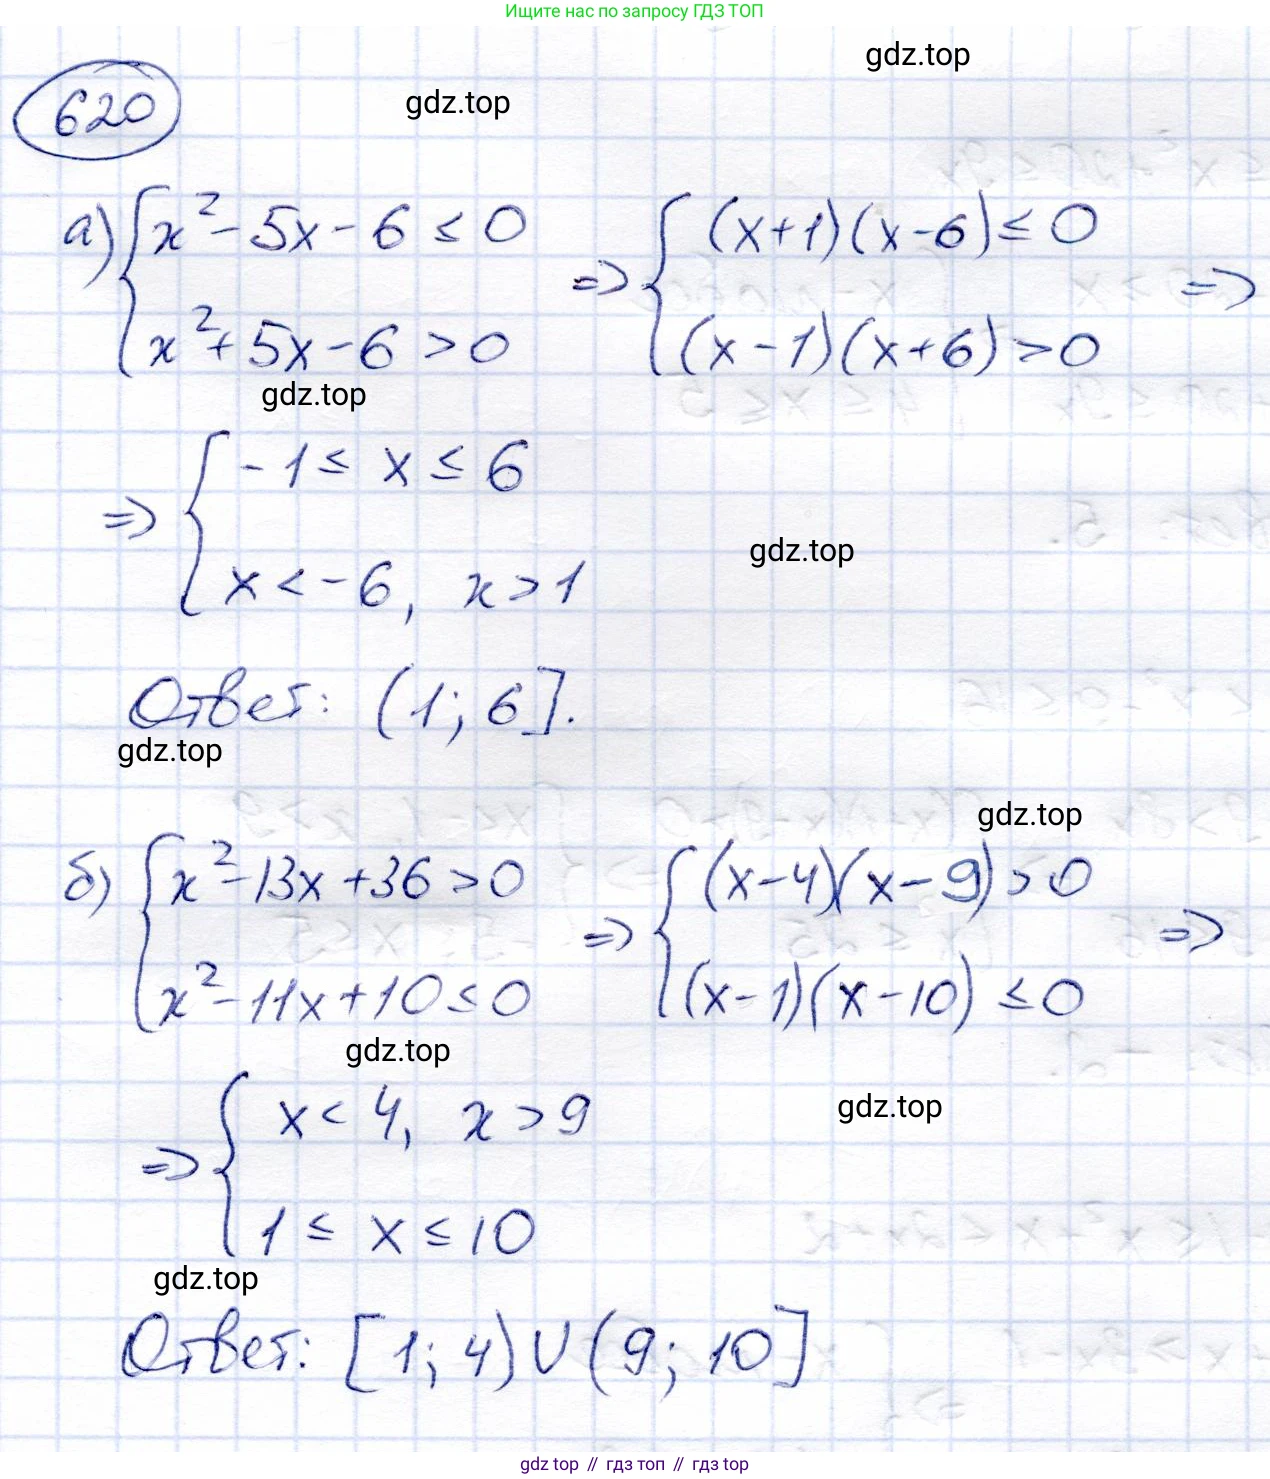 Ищите нас по запросу ГДЗ ТОП
gdz.top
620
gdz.top
а) { x² - 5x - 6 ≤ 0 => { (x+1)(x-6) ≤ 0 =>
x² + 5x - 6 > 0 (x-1)(x+6) > 0
gdz.top
=> { -1 ≤ x ≤ 6
gdz.top
x < -6, x > 1
Ответ: (1; 6].
gdz.top
gdz.top
б) { x² - 13x + 36 > 0 => { (x-4)(x-9) > 0 =>
x² - 11x + 10 ≤ 0 (x-1)(x-10) ≤ 0
gdz.top
=> { x < 4, x > 9
gdz.top
1 ≤ x ≤ 10
gdz.top
Ответ: [1; 4) ∪ (9; 10]
gdz top // гдз топ // гдз top